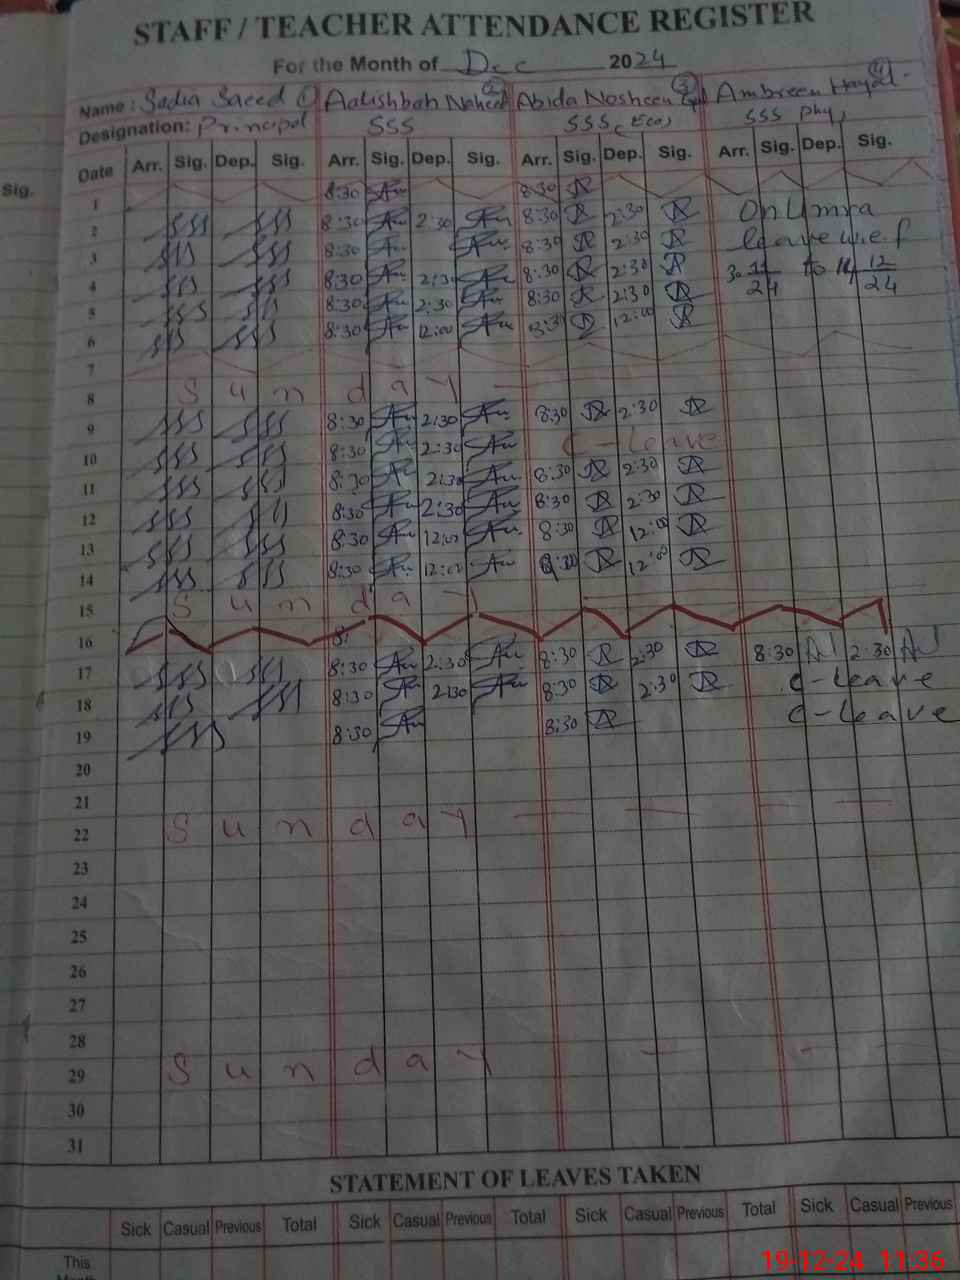 STAFF / TEACHER ATTENDANCE REGISTER
For the Month of Dec 2024
Name: Sadia Saeed ① Aatishbah Naheed ② Abida Nosheen ③ Ambreen Hayat ④
Designation: Principal SSS SSS (Eco) SSS Phy
Sig. Date Arr. Sig. Dep. Sig. Arr. Sig. Dep. Sig. Arr. Sig. Dep. Sig. Arr. Sig. Dep. Sig.
1 8:30 8:30
2 8:30 2:30 8:30 2:30 On Umra
3 8:30 8:30 2:30 leave w.e.f
4 8:30 2:30 8:30 2:30 30 11/24 to 12/24
5 8:30 2:30 8:30 2:30
6 8:30 12:00 8:30 12:00
7
8 Sunday
9 8:30 2:30 8:30 2:30
10 8:30 2:30 C-Leave
11 8:30 2:30 8:30 2:30
12 8:30 2:30 8:30 2:30
13 8:30 12:00 8:30 12:00
14 8:30 12:00 8:30 12:00
15 Sunday
16 8:
17 8:30 2:30 8:30 2:30 8:30 2:30
18 8:30 2:30 8:30 2:30 C-Leave
19 8:30 8:30 C-Leave
20
21
22 Sunday
23
24
25
26
27
28
29 Sunday
30
31
STATEMENT OF LEAVES TAKEN
Sick Casual Previous Total Sick Casual Previous Total Sick Casual Previous Total Sick Casual Previous
This
Month
19-12-24 11:36